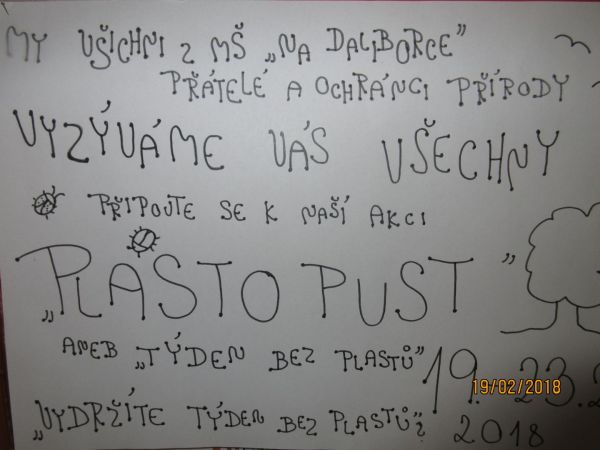 MY VŠICHNI Z MŠ „NA DALIBORCE"
PŘÁTELÉ A OCHRÁNCI PŘÍRODY
VYZÝVÁME VÁS VŠECHNY
PŘIPOJTE SE K NAŠÍ AKCI
„PLASTO PUST"
ANEB „TÝDEN BEZ PLASTŮ" 19. - 23. 2.
„VYDRŽÍTE TÝDEN BEZ PLASTŮ? 2018
19/02/2018